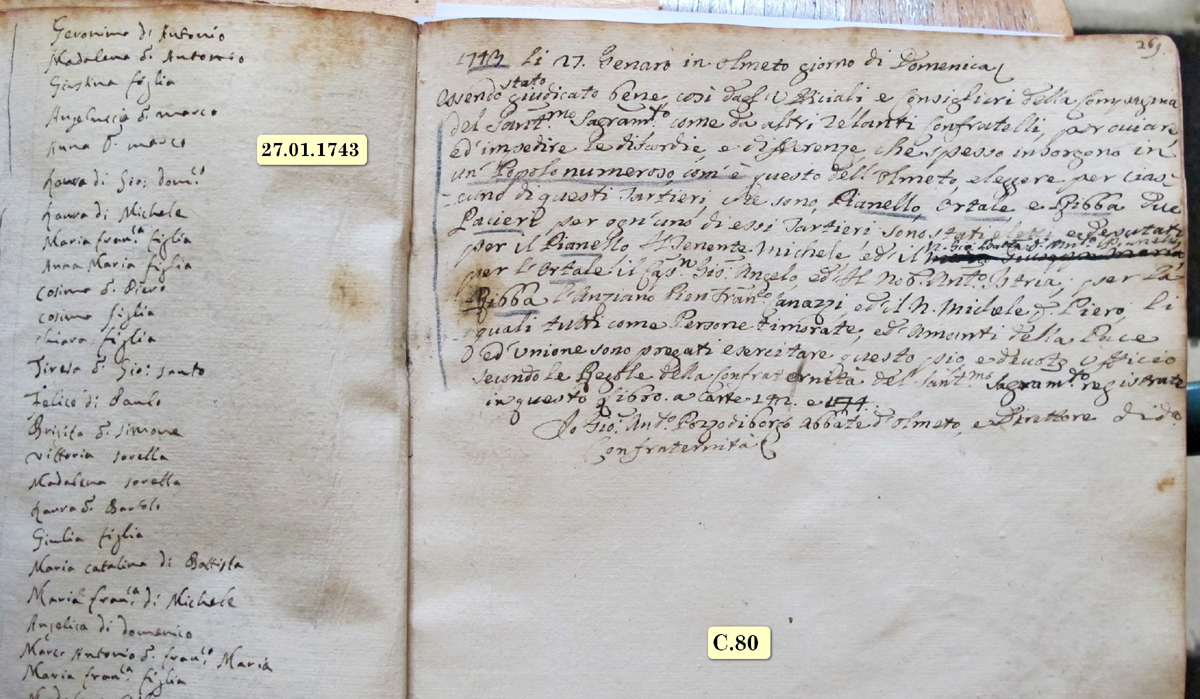 Geronimo di Antonio
Madalena q. Antonio
Giustina figlia
Angeluccia q. marco
Anna q. marco
Laura di Gio: Dom.co
Laura di Michele
Maria fran.ca figlia
Anna Maria figlia
Cosimo q. Piero
Cosimo figlia
Chiara figlia
Tiresa q. Gio: santo
Felice di Paulo
Brisita q. simone
Vittoria sorella
Madalena sorella
Laura q. Bartolo
Giulia figlia
Maria catalina di Battista
Maria fran.ca di Michele
Angelica di domenico
Marco Antonio q. fran.co Maria
Maria fran.ca figlia
27.01.1743
269.
1743 li 27. Genaro in Olmeto giorno di Domenica
Essendo stato giudicato bene così dagl'Ufficiali e Consiglieri della Compagnia
del Sant.mo Sagram.to come da altri zelanti Confratelli, per oviare
ed'impedire le discordie e differenze che spesso insorgono in
un' Popolo numeroso, com'è questo dell'Olmeto, eleggere per cias-
cuno di questi Tartieri, che sono, Pianello, Ortale, e Bibba due
Pacieri, per ogn'uno di essi Tartieri sono stati eletti e deputati
per il Pianello Tenente Michele ed il
per l'Ortale il Gio: Angelo, ed Ant.o Istria, per la
Bibba l'Anziano Pien Fran.co Ganazzi, ed il N. Michele q. Piero, li
quali tutti come Persone timorate, ed'Amanti della Pace
ed'Unione sono pregati esercitare questo pio e devoto Ufficio
secondo le Regole della Confraternità del Sant.mo Sagram.to registrate
in questo Libro a Carte 142. e 144.
Io Gio: And.a Pozzodiborgo Abbate d'Olmeto, e Direttore di d.a
Confraternità
C.80